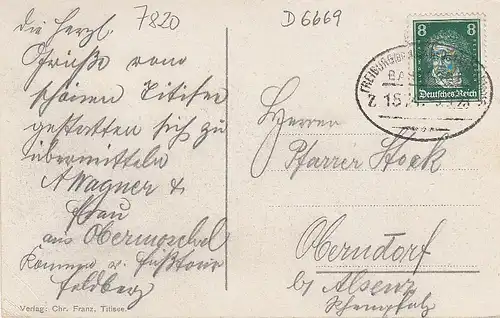 7820
D6669
die herzl.
Grüße vom
schönen Titisee
gestatten sich zu
übermitteln
A Wagner &
Frau
aus Obermoschel
Kommen v. Fußtour
Feldberg
Verlag: Chr. Franz, Titisee.
8 8
Deutsches Reich
FREIBURG
BAS
Z 15
Herren
Pfarrer Hock
Oberndorf
b/ Alsenz
Rheinpfalz